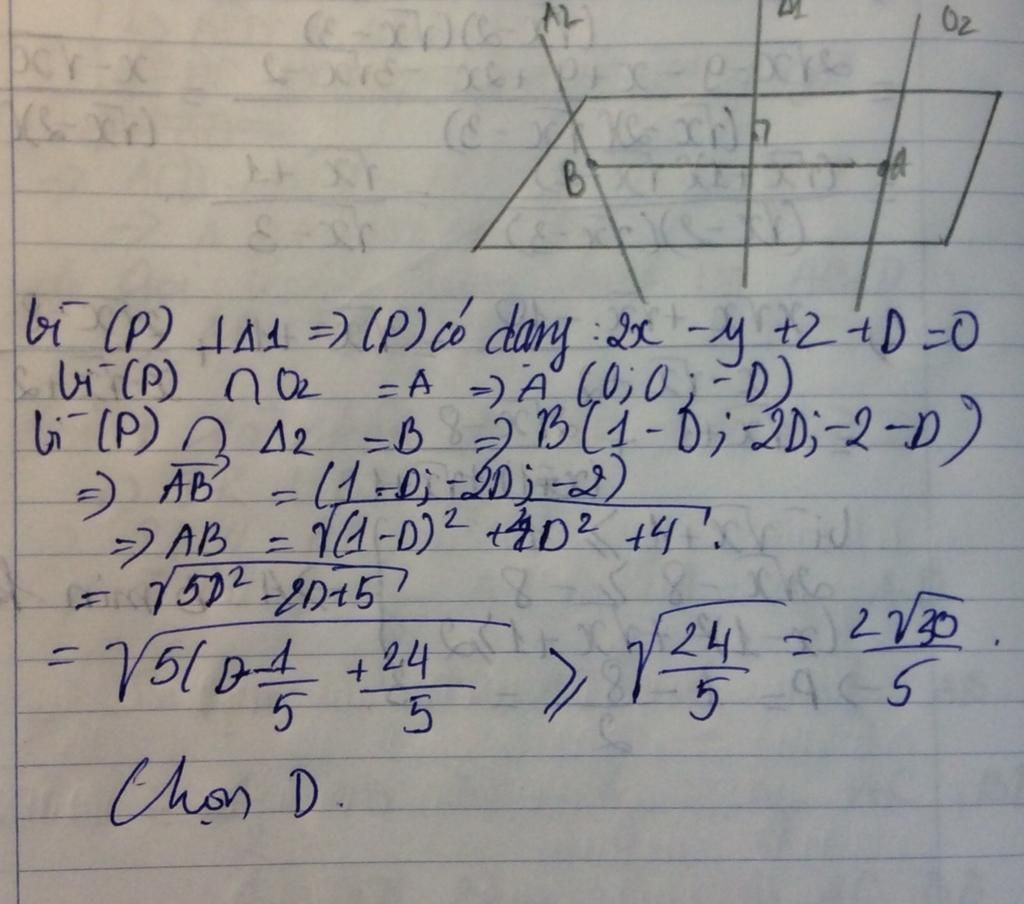 Δ2 Δ1 O2
B A
Vì (P) ⊥Δ1 => (P) có dạng: 2x - y + z + D = 0
Vì (P) ∩ O2 = A => A (0; 0; -D)
Vì (P) ∩ Δ2 = B => B (1 - D; -2D; -2 - D)
=> AB = (1 - D; -2D; -2)
=> AB = √(1-D)² + 4D² + 4.
= √5D² - 2D + 5
= √5(D - 1/5 + 24/5 ≥ √24/5 = 2√30/5.
Chọn D.